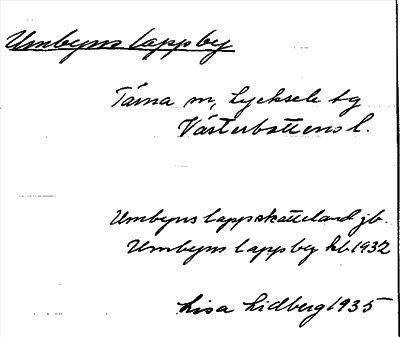 Umbyns lappby
Tärna sn, Lycksele tg
Västerbottens l.
Umbyns lappskatteland jb.
Umbyns lappby kb 1932
Lisa Lidberg 1935